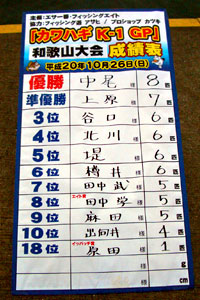 主催：エサ一番・フィッシングエイト
協力：フィッシング遊 アサヒ / プロショップ カツキ
「カワハギ K-1 GP」
和歌山大会 成績表
平成20年10月26日(日)
優勝 中尾 様 8 匹
準優勝 上原 様 7 匹
3位 谷口 様 6 匹
4位 北川 様 6 匹
5位 堤 様 6 匹
6位 樽井 様 6 匹
7位 田中武 様 5 匹
8位 エイト賞 田中学 様 5 匹
9位 麻田 様 5 匹
10位 出向井 様 4 匹
18位 イツバッチ賞 原田 様 1 匹
様 g
様 cm